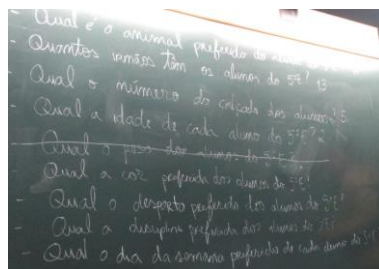 - Qual é o animal preferido do
- Quantos irmãos têm os alunos do 5º? 13
- Qual o número do calçado dos alunos? 5
- Qual a idade de cada aluno do 5ºE? 2
- Qual o peso dos alunos do 5ºE
Qual a cor preferida dos alunos do 5ºE?
- Qual o desporto preferido dos alunos do 5ºE?
- Qual a disciplina preferida dos alunos do 5ºE?
- Qual o dia da semana preferido de cada aluno do 5ºE